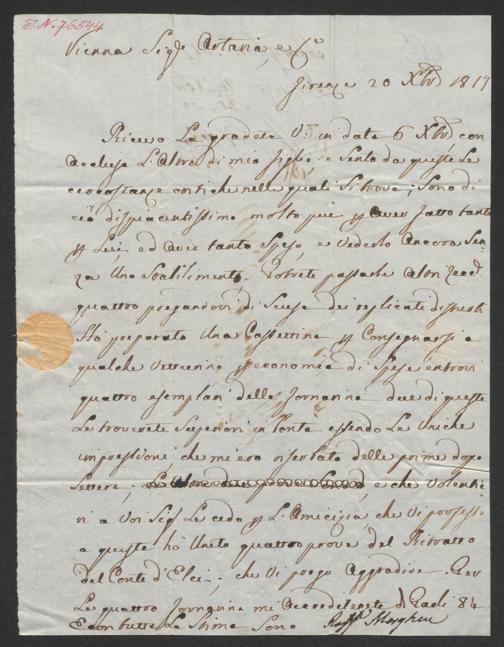 I.N. 76544
Vienna Sigri Artaria, e Co
Firenze 20 Xbre 1817
Ricevo La gradeta Vra in data 6 Xbre con
accluse L'altra di mio figlio e Sento da queste Le
circostanze critiche nelle quali Si trova; Sono di
ciò dispiacentissimo molto più p aver fatto tanto
p Lui, ed aver tanto Speso, e vederlo ancora Sen
za Uno Stabilimento. Potrete passarle altri
quattro pregandovi di Scuse dei replicati disturbi
Ho preparato Una Cassettina p Consegnarsi a
qualche Vetturino p economia di Spese entrovi
quattro esemplari delle Fornarine due di queste
Le troverete Superiori in Tanto essendo Le Uniche
impressioni che mi ero riserbato delle prime dopo
Lettere, e che Volentie
ri a Voi Sigri Le cedo p L'Amicizia che Vi professo
a queste ho Unito quattro prove del Ritratto
del Conte d'Elci, che Vi prego Aggradire. Per
Le quattro Fornarine mi accrediterete di Paoli 84
E con tutta La Stima Sono Raffo Morghen